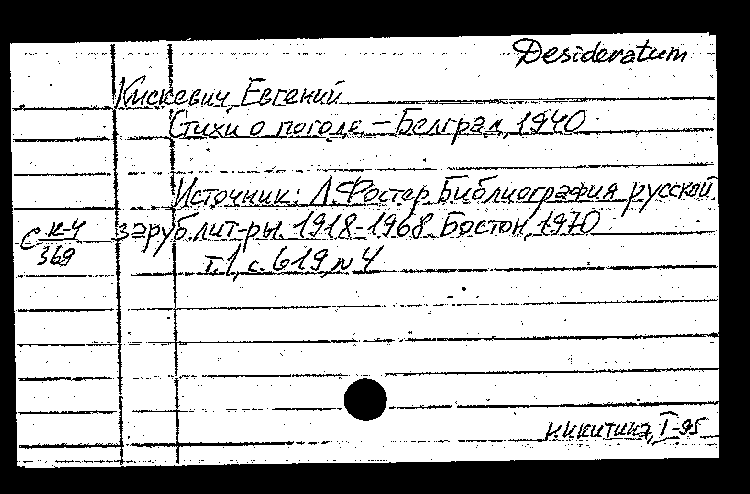 Desideratum
Кискевич, Евгений
Стихи о погоде – Белград, 1940
Источник: Л. Фостер Библиография русской
заруб. лит-ры. 1918-1968. Бостон, 1970
т.1, с. 619, N 4
С к-4
369
никитина, I-95